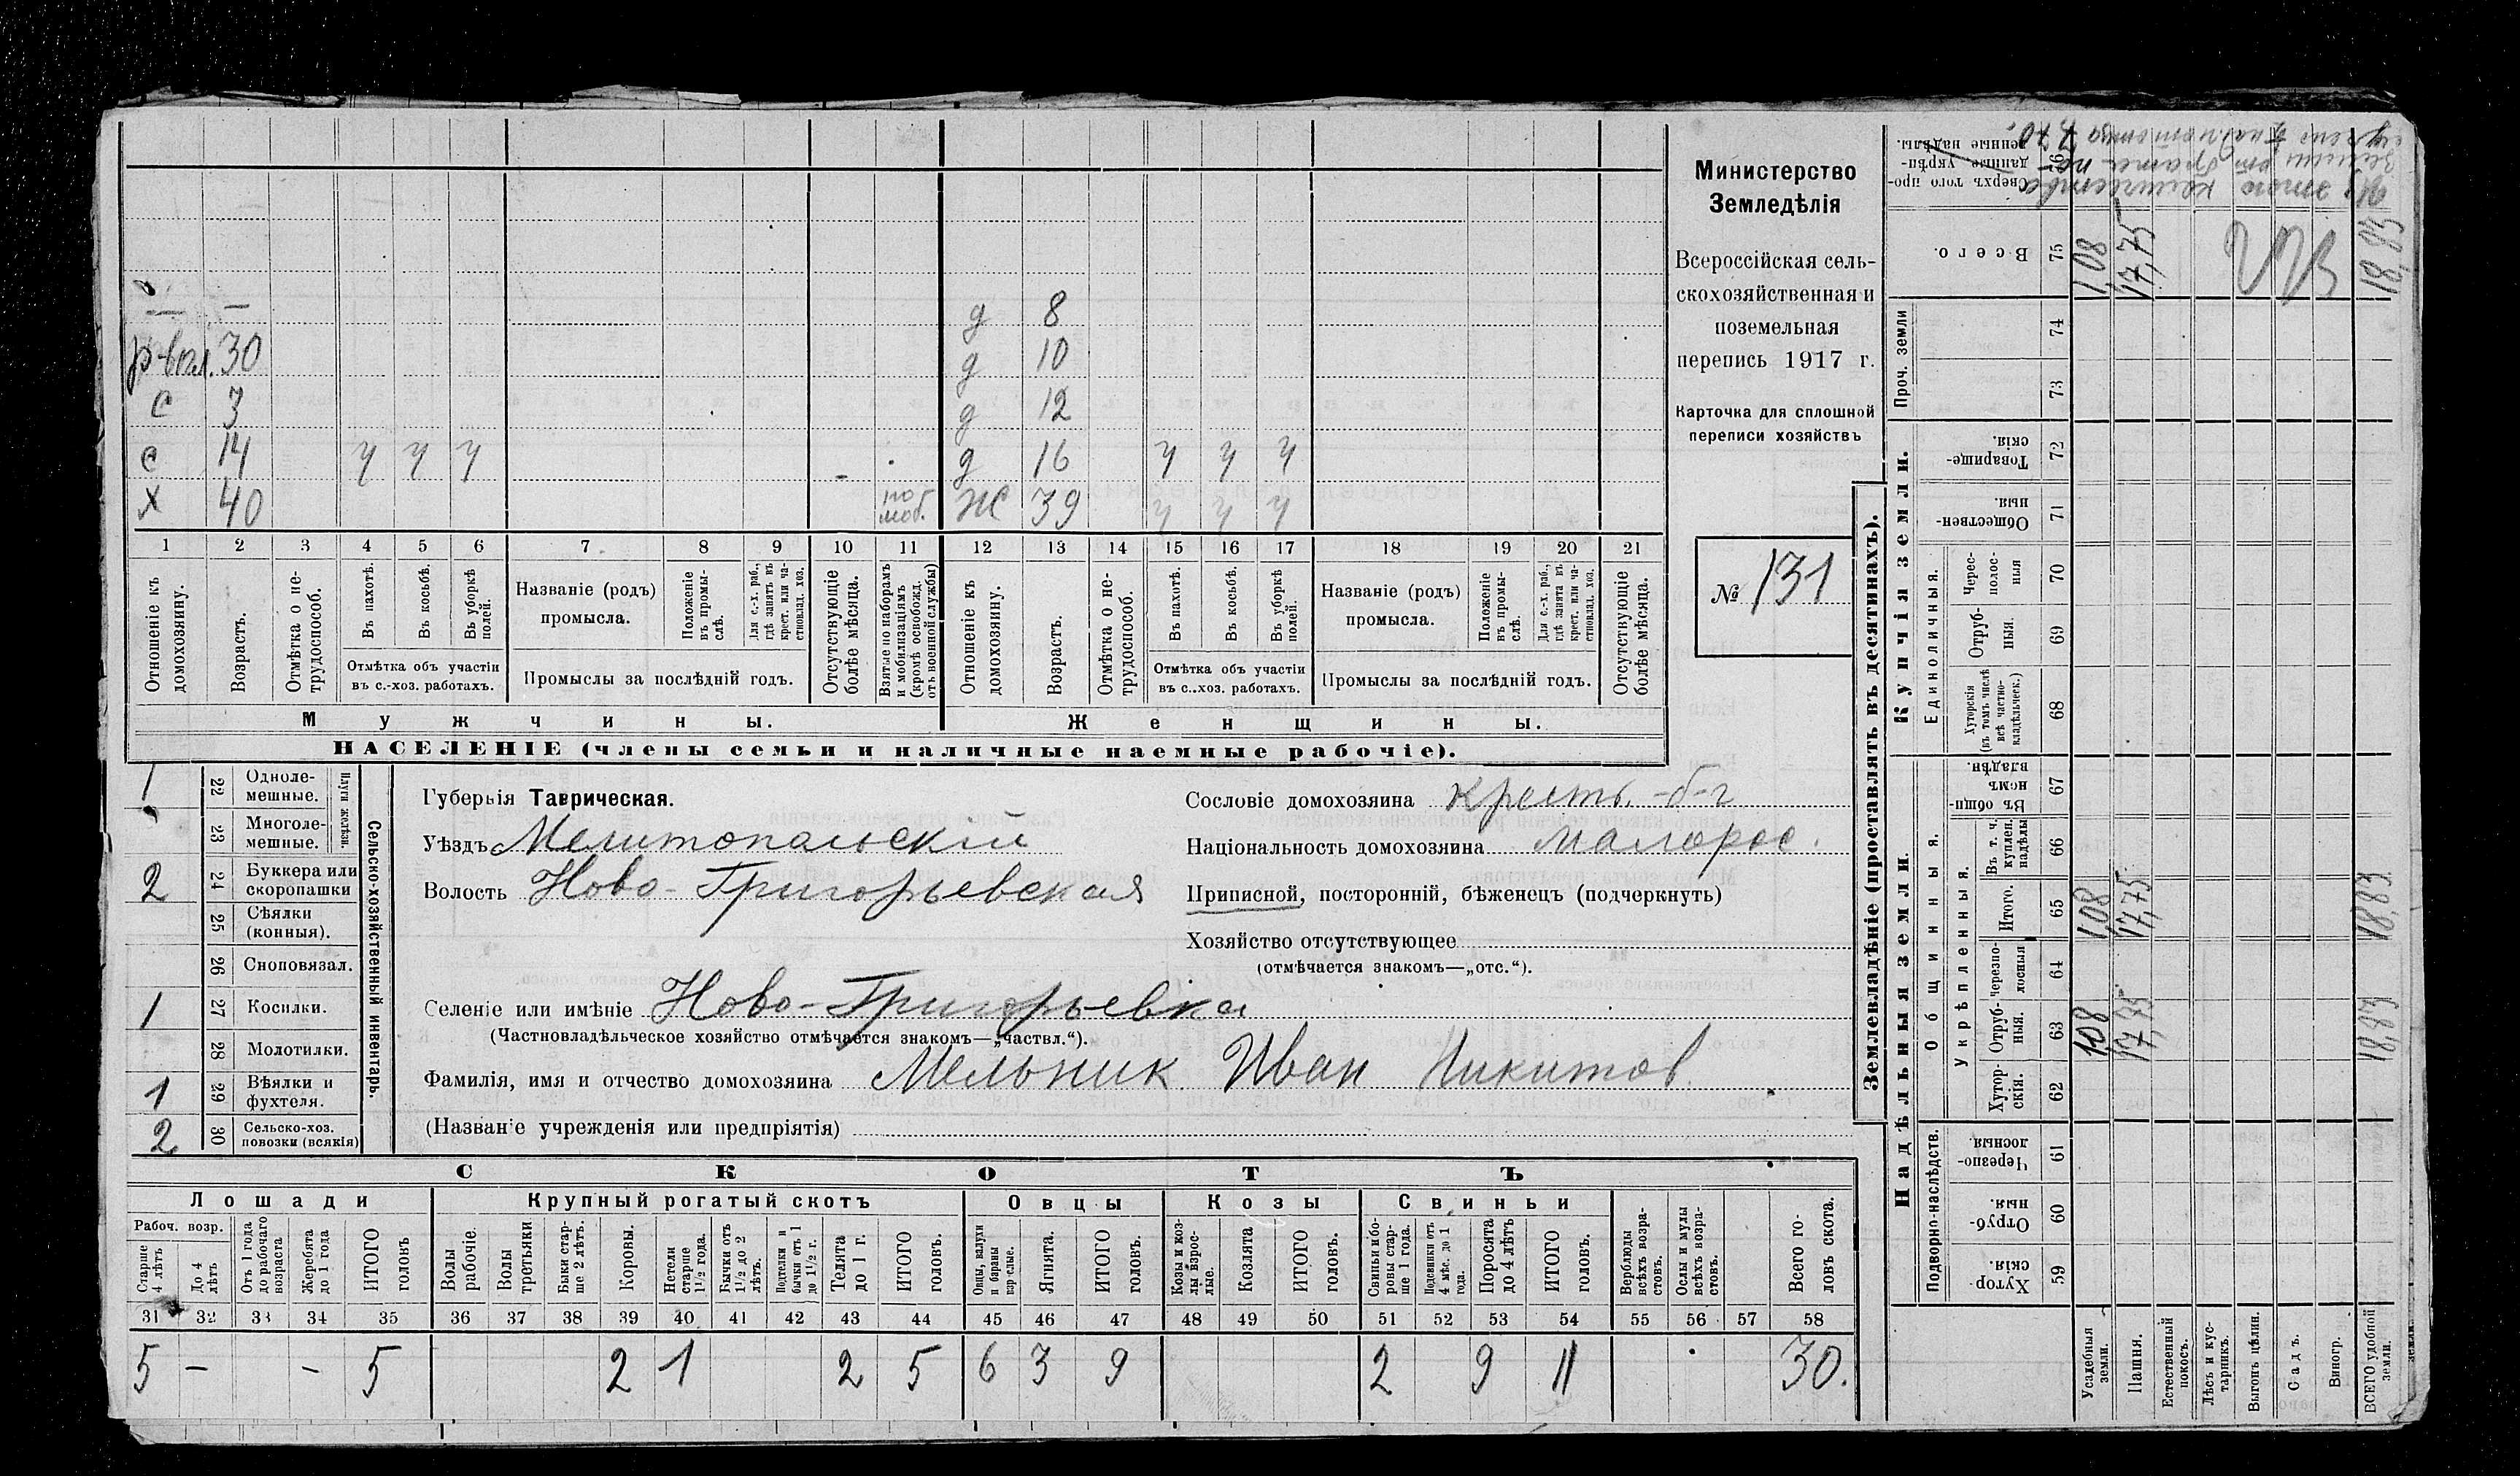 Министерство
Земледѣлія
Всероссійская сель-
скохозяйственная и
поземельная
перепись 1917 г.
Карточка для сплошной
переписи хозяйствъ
№ 131
— — д 8
30 д 10
с 3 д 12
с 14 ч ч ч д 16 ч ч ч
Х 40 по моб. Ж 39 ч ч ч
1 2 3 4 5 6 7 8 9 10 11 12 13 14 15 16 17 18 19 20 21
Отношеніе къ домохозяину.
Возрастъ.
Отмѣтка о не-трудоспособ.
Въ пахотѣ.
Въ косьбѣ.
Въ уборкѣ полей.
Отмѣтка объ участіи
въ с.-хоз. работахъ.
Названіе (родъ)
промысла.
Положеніе въ промы-слѣ.
Для с.-х. раб., гдѣ занятъ въ крест. или ча-стновлад. хоз.
Промыслы за послѣдній годъ.
Отсутствующіе болѣе мѣсяца.
Взятые по наборамъ и мобилизаціямъ (кромѣ освобожд. отъ военной службы)
Отношеніе къ домохозяину.
Возрастъ.
Отмѣтка о не-трудоспособ.
Въ пахотѣ.
Въ косьбѣ.
Въ уборкѣ полей.
Отмѣтка объ участіи
въ с..хоз. работахъ.
Названіе (родъ)
промысла.
Положеніе въ промы-слѣ.
Для с.-х. раб., гдѣ занята въ крест. или ча-стновлад. хоз.
Промыслы за послѣдній годъ.
Отсутствующіе болѣе мѣсяца.
Мужчины. Женщины.
НАСЕЛЕНІЕ (члены семьи и наличные наемные рабочіе).
Сельско-хозяйственный инвентарь.
Плуги желѣзн.
1 22 Одноле-мешные.
23 Многоле-мешные.
2 24 Буккера или скоропашки
25 Сѣялки (конныя).
26 Сноповязал.
1 27 Косилки.
28 Молотилки.
1 29 Вѣялки и фухтеля.
2 30 Сельско-хоз. повозки (всякія)
Губернія Таврическая.
Уѣздъ Мелитопольскій
Волость Ново-Григорьевская
Сословіе домохозяина крестъ.-б-г
Національность домохозяина малорос.
Приписной, посторонній, бѣженецъ (подчеркнуть)
Хозяйство отсутствующее
(отмѣчается знакомъ—„отс.“).
Селеніе или имѣніе Ново-Григорьевка
(Частновладѣльческое хозяйство отмѣчается знакомъ—„частвл.“).
Фамилія, имя и отчество домохозяина Мельник Иван Никитов
(Названіе учрежденія или предпріятія)
СКОТЪ
Лошади Крупный рогатый скотъ Овцы Козы Свиньи
Рабоч. возр.
Старше 4 лѣтъ
До 4 лѣтъ
Отъ 1 года до рабочаго возраста
Жеребята до 1 года
ИТОГО головъ
Волы рабочіе.
Волы третьяки
Быки стар-ше 2 лѣтъ.
Коровы.
Нетели старше 1½ года.
Бычки отъ 1½ до 2 лѣтъ.
Подтелки и бычки отъ 1 до 1½ г.
Телята до 1 г.
ИТОГО головъ.
Овцы, валухи и бараны взрослые.
Ягнята.
ИТОГО головъ.
Козы и коз-лы взрос-лые.
Козлята
ИТОГО головъ.
Свиньи и бо-ровы стар-ше 1 года.
Подсвинки отъ 4 мѣс. до 1 года.
Поросята до 4 лѣтъ
ИТОГО головъ.
Верблюды всѣхъ возра-стовъ.
Ослы и мулы всѣхъ возра-стовъ.
Всего го-ловъ скота.
31 32 33 34 35 36 37 38 39 40 41 42 43 44 45 46 47 48 49 50 51 52 53 54 55 56 57 58
5 – – 5 2 1 2 5 6 3 9 2 9 11 30.
Землевладѣніе (проставлять въ десятинахъ).
Надѣльныя земли. Купчія земли.
Подворно-наслѣдств.
Общинныя.
Укрѣпленныя.
Единоличныя.
Проч. земли
Хутор-скія. 59
Отруб-ныя. 60
Черезпо-лосныя. 61
Хутор-скія. 62
Отруб-ныя. 63
Черезпо-лосныя 64
Итого. 65
Въ т. ч. куплен. надѣлы 66
Въ общи-номъ владѣн. 67
Хуторскія (въ томъ числѣ всѣ частно-владѣльческ.) 68
Отруб-ныя. 69
Черес-полос-ныя 70
Обществен-ныя. 71
Товарище-скія. 72
73
74
Всего. 75
Сверхъ того про-данные укрѣп-ленные надѣлы. 76
Усадебныя земли. 1,08 1,08 1,08
Пашня. 17,75 17,75 17,75
Естественный покосъ.
Лѣсъ и кус-тарникъ.
Выгонъ цѣлин.
Садъ.
Виногр.
ВСЕГО удобной земли. 18,83 18,83 18,83